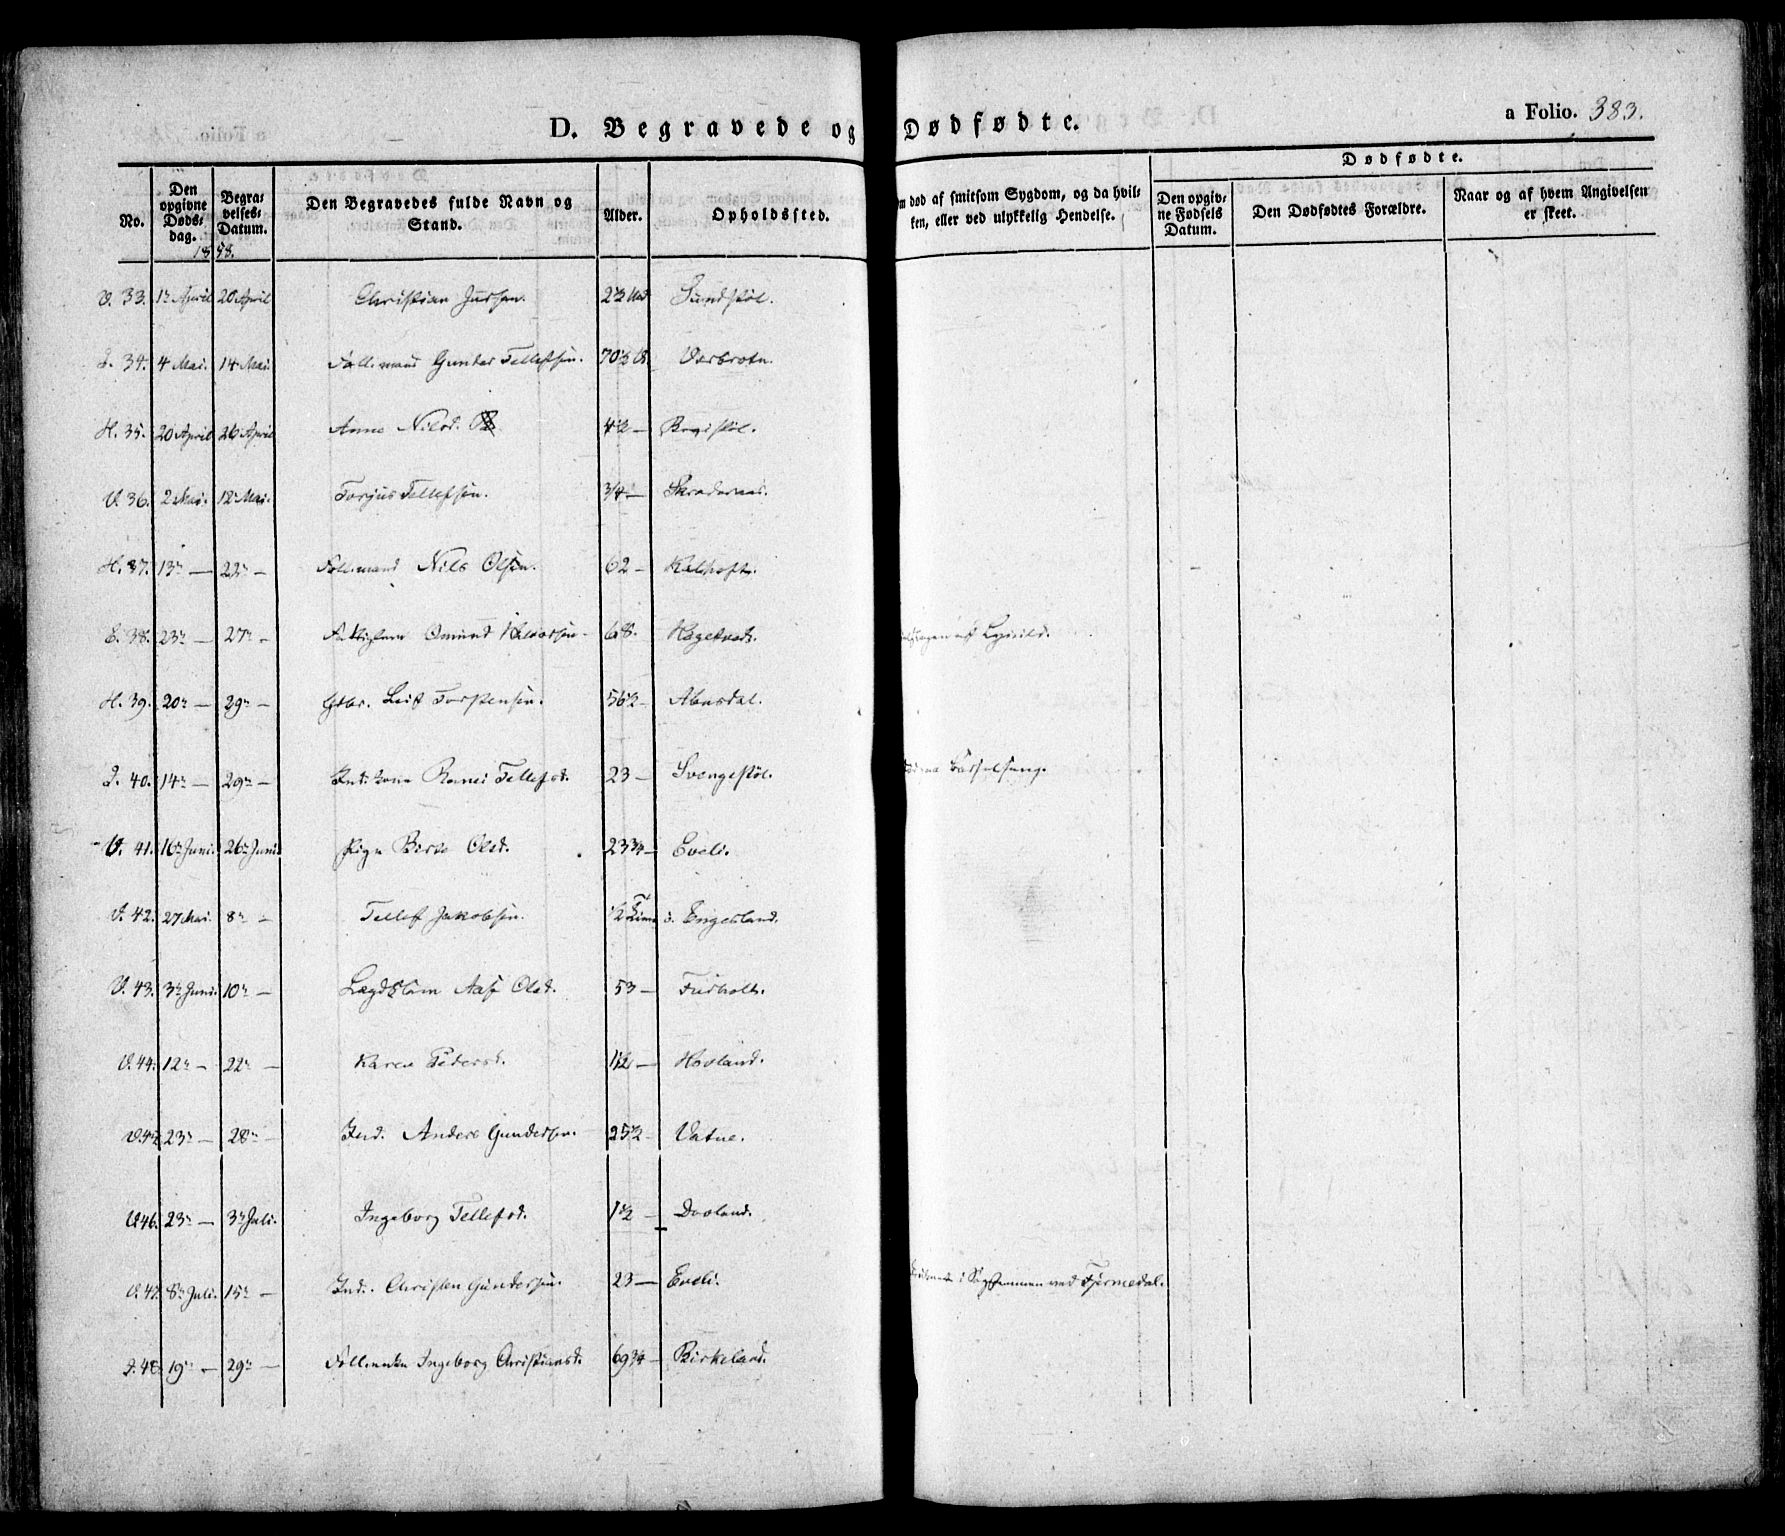 D. Begravede og Dødfødte.
a Folio. 383.
No.
Den opgivne Døds-dag.
Begra-velses-Datum.
1858.
Den Begravedes fulde Navn og Stand.
Alder.
Opholdsstед.
om død af smitsom Sygdom, og da hvil-
ken, eller ved ulykkelig Hendelse.
Dødfødte.
Den opgiv-ne Fødsels Datum.
Den Dødfødtes Forældre.
Naar og af hvem Angivelsen er skeet.
V. 33. 1 April 20 April Christian 2½ Sundstøl.
34. 4 Mai. 14 Mai. Gunder Tellefsen. 70½
H. 35. 20 April 26 April Anne Nilsd. 4½ —
V. 36. 2 Mai. 12 Mai. Torjus Tellefsen. 3/4 —
H. 37. 13 — 22 — Nils Olsen. 62 —
38. 23 — 27 — Omund 68.
H. 39. 20 — 29 — Leif Torstensen. 56½ Abusdal.
40. 14 — 29 — Tellefsd. 23 — Svengestøl. Barselseng.
V. 41. 16 Juni. 26 Juni. Pige Olsd. 23¾ — Eveli.
V. 42. 27 Mai. 8 — Tellef Jakobsen. ½ Engesland.
V. 43. 3 Juni. 10 — Lægdslem Aase Olsd. 53 —
V. 44. 12 — 22 — Karen Pedersd. 1½ — Hovland.
V. 45 23 — 28 — Ind. Anders Gundersen. 25½ Vatne.
V. 46. 23 — 3 Juli. Ingeborg Tellefsd. 1½ — Dovland.
V. 47. 8 Juli. 15 — Ind. Christen Gundersen. 23 — Eveli. i ved Fjermedal.
48. 19 — 29 — Ingeborg Christiansd. 69¾ — Birkeland.